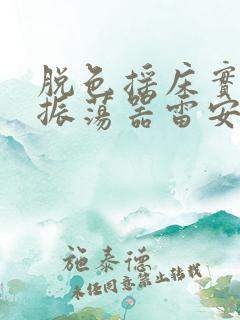 脱色摇床實
振荡器雷安
施泰德
未任同意禁止转载